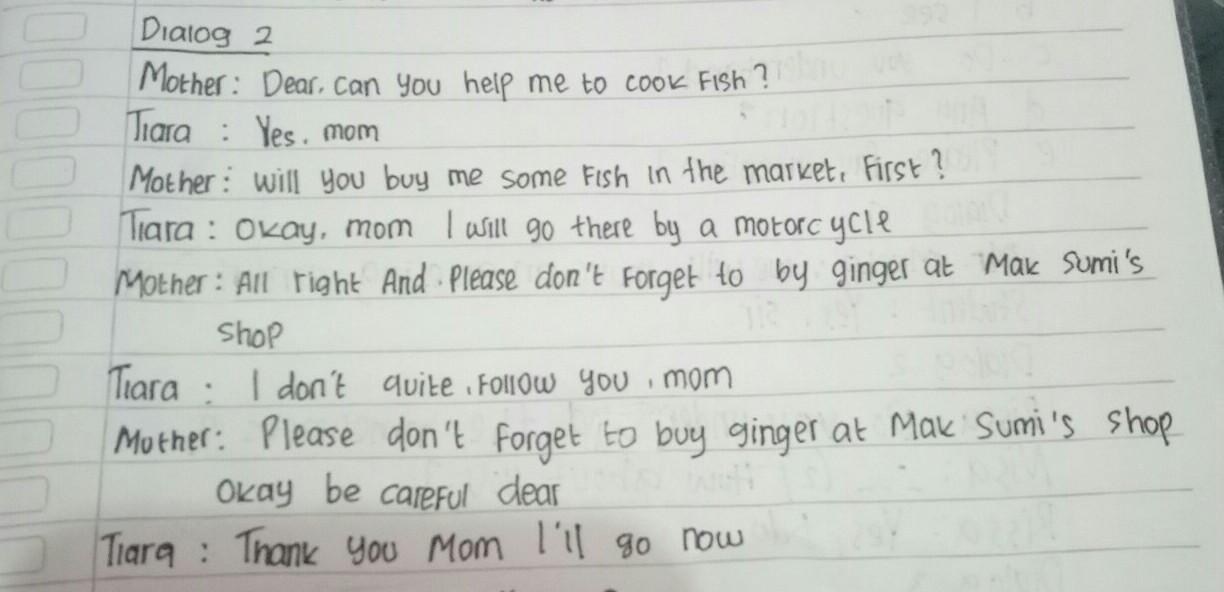 Dialog 2
Mother: Dear. can you help me to cook Fish?
Tiara : Yes. mom
Mother: will you buy me some Fish in the market, First?
Tiara : Okay. mom I will go there by a motorcycle
Mother: All right And. Please don't Forget to by ginger at Mak Sumi's
shop
Tiara : I don't quite, Follow you, mom
Mother: Please don't Forget to buy ginger at Mak Sumi's shop
Okay be careful dear
Tiara : Thank you Mom I'll go now